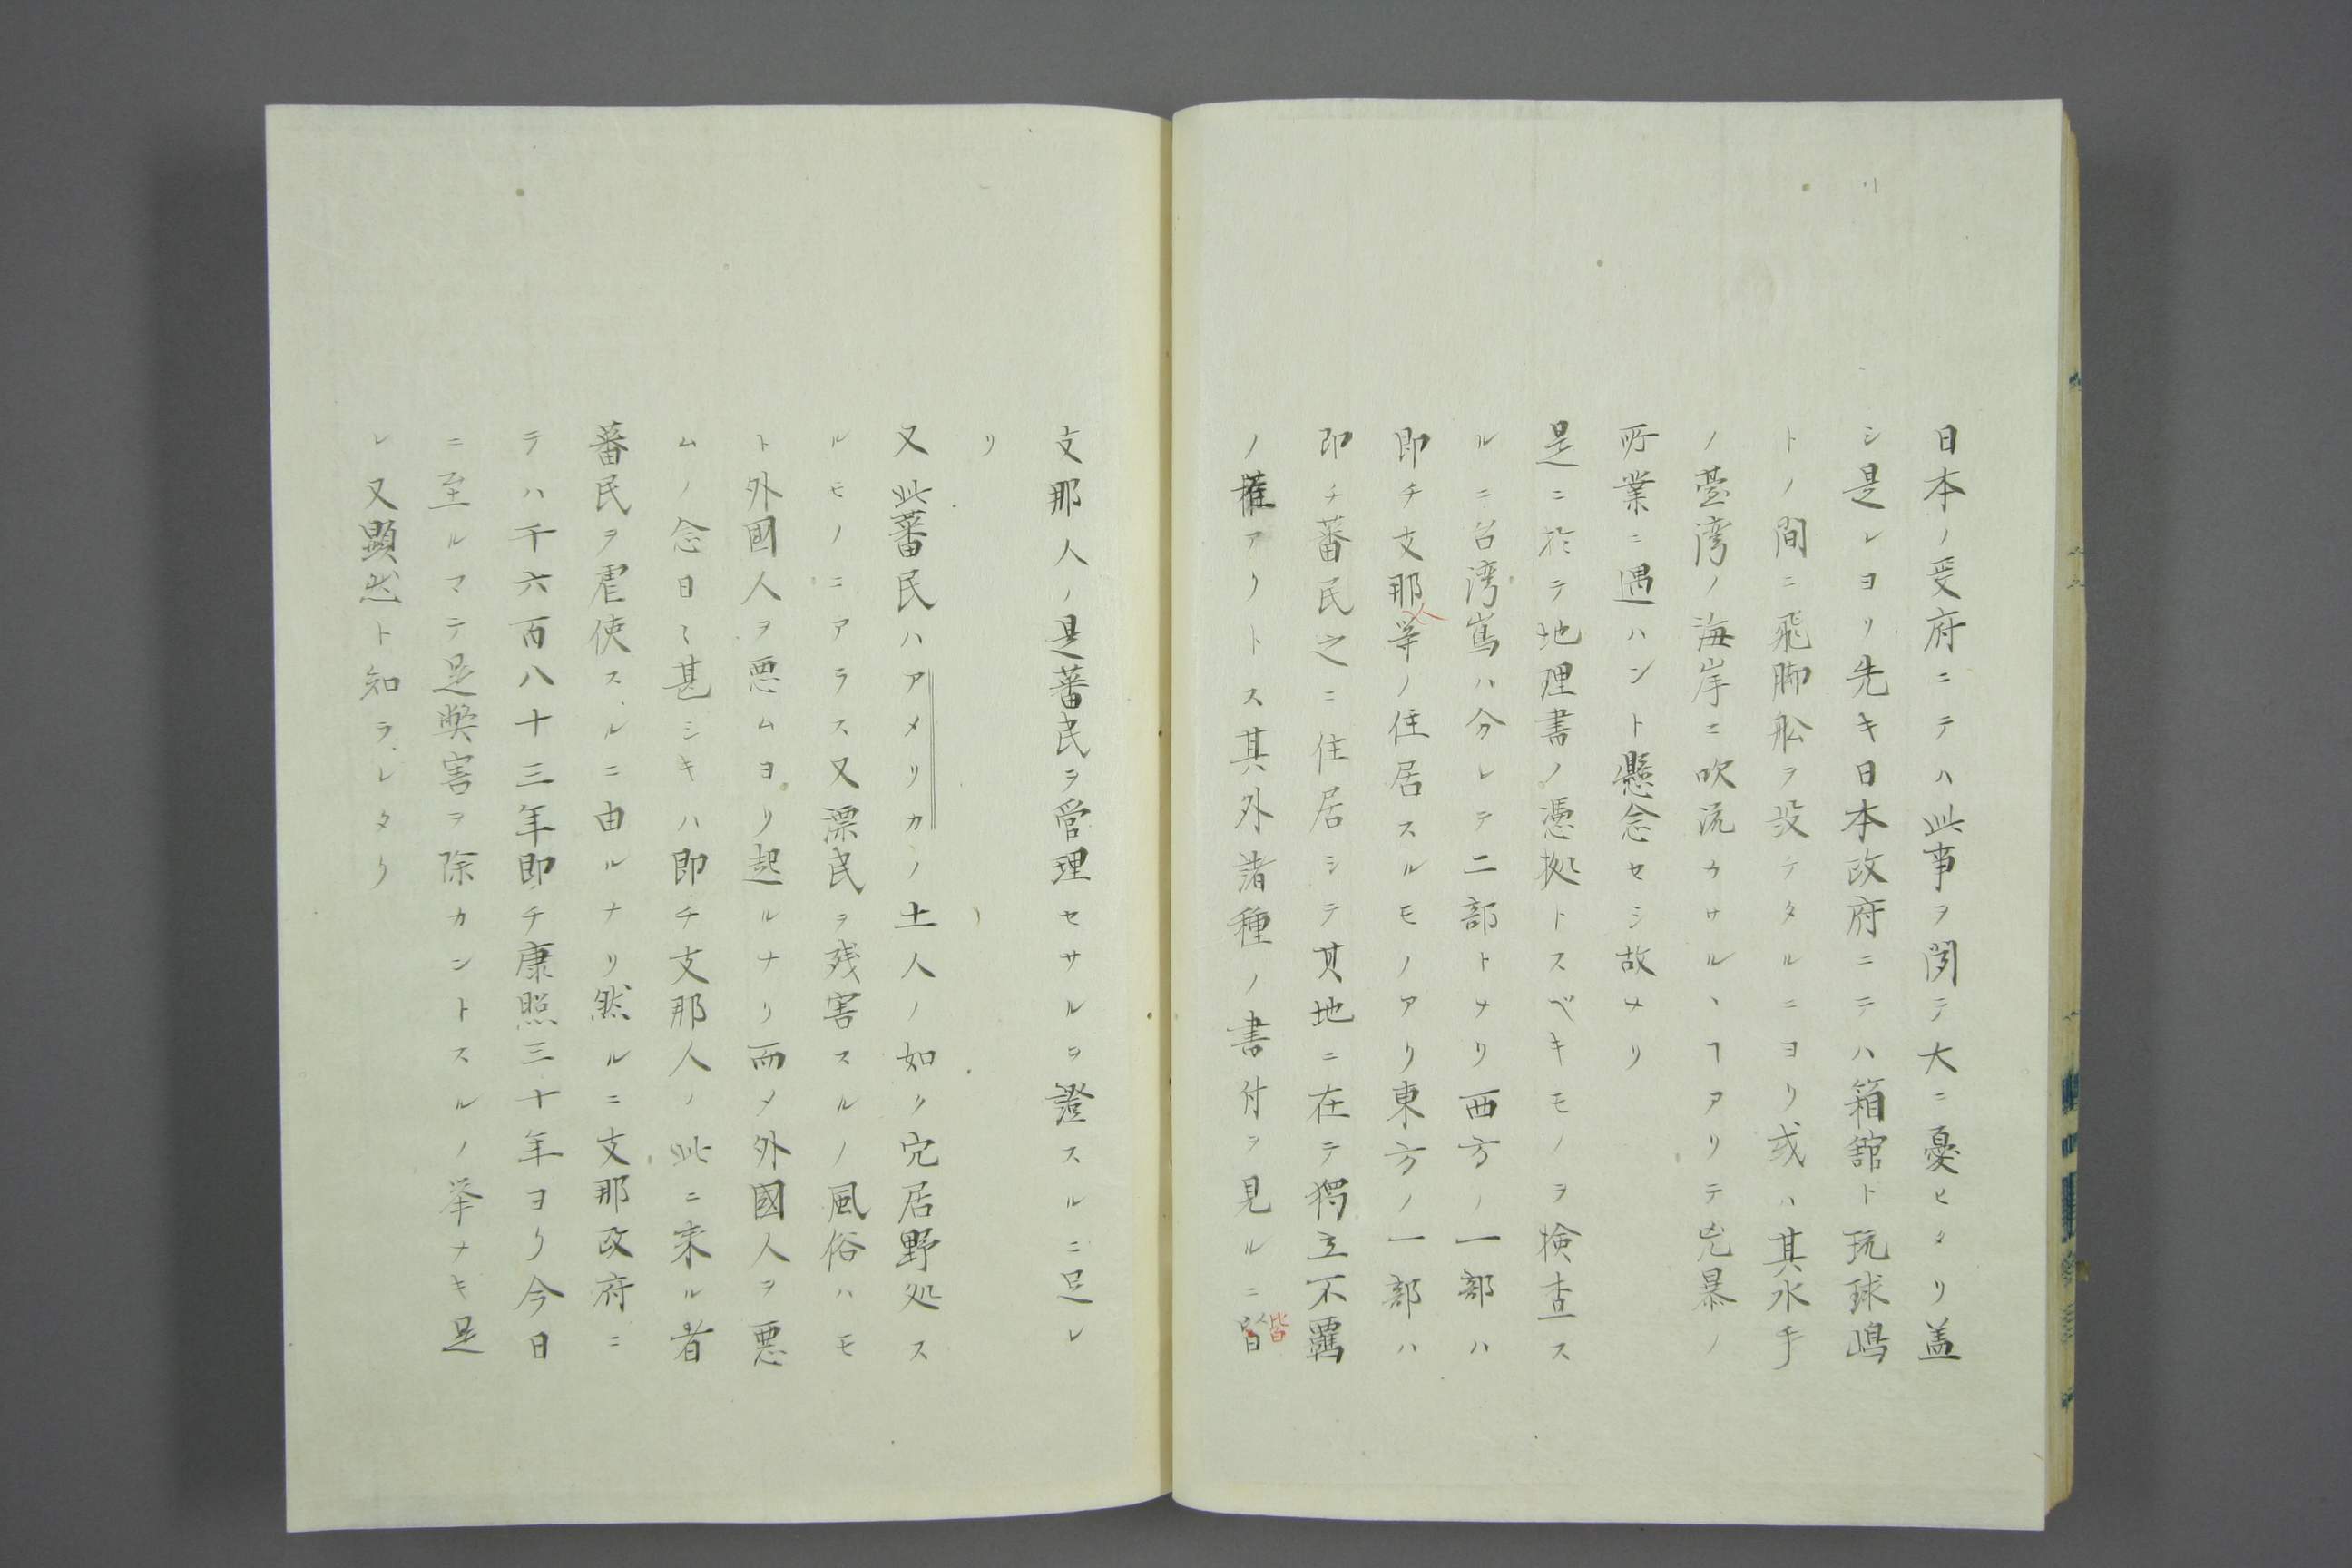 日本ノ政府ニテハ此事ヲ聞テ大ニ憂ヒタリ盖
シ是レヨリ先キ日本政府ニテハ箱舘ト琉球嶋
トノ間ニ飛脚舩ヲ設テタルニヨリ或ハ其水手
ノ臺湾ノ海岸ニ吹流サルヽヿアリテ兇暴ノ
所業ニ遇ハント懸念セシ故ナリ
是ニ於テ地理書ノ憑拠トスベキモノヲ検査ス
ルニ台湾嶌ハ分レテ二部トナリ西方ノ一部ハ
即チ支那人等ノ住居スルモノアリ東方ノ一部ハ
即チ蕃民之ニ住居シテ其地ニ在テ獨立不羈
ノ権アリトス其外諸種ノ書付ヲ見ルニ皆
支那人ノ是蕃民ヲ管理セサルヲ證スルニ足レ
リ
又此蕃民ハアメリカノ土人ノ如ク穴居野処ス
ルモノニアラス又漂民ヲ残害スルノ風俗ハモ
ト外國人ヲ悪ムヨリ起ルナリ而メ外國人ヲ悪
ムノ念日々甚シキハ即チ支那人ノ此ニ来ル者
蕃民ヲ虐使スルニ由ルナリ然ルニ支那政府ニ
テハ千六百八十三年即チ康熙三十年ヨリ今日
ニ至ルマテ是弊害ヲ除カントスルノ挙ナキ是
レ又顕然ト知ラレタリ